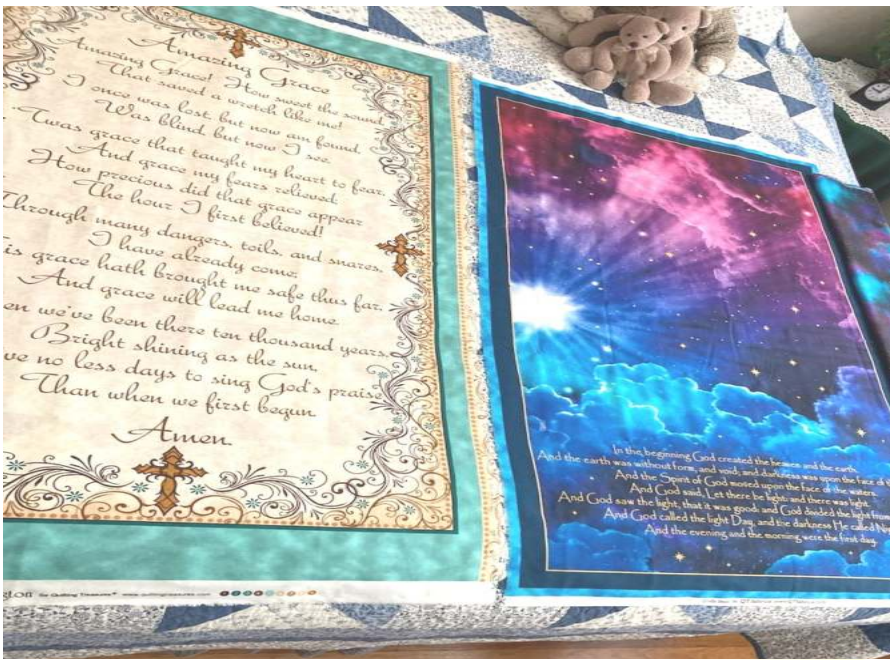 Amazing Grace
Amazing Grace! How sweet the sound
That saved a wretch like me!
I once was lost, but now am found,
Was blind, but now I see.
'Twas grace that taught my heart to fear,
And grace my fears relieved;
How precious did that grace appear
The hour I first believed!
Through many dangers, toils, and snares,
I have already come;
is grace hath brought me safe thus far,
And grace will lead me home.
en we've been there ten thousand years,
Bright shining as the sun,
ve no less days to sing God's praise
Than when we first begun.
Amen.
for Quilting Treasures™ www.quiltingtreasures.com
In the beginning God created the heaven and the earth.
And the earth was without form, and void; and darkness was upon the face of
And the Spirit of God moved upon the face of the waters.
And God said, Let there be light: and there was light.
And God saw the light, that it was good: and God divided the light from
And God called the light Day, and the darkness He called
And the evening and the morning were the first day.